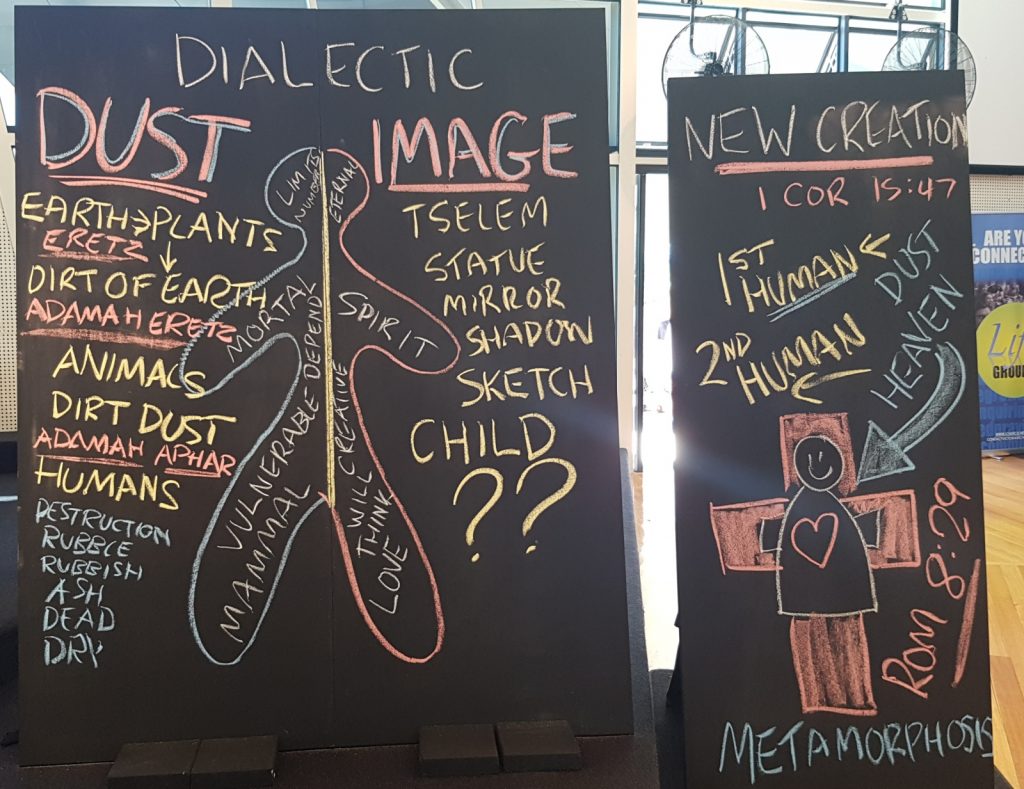 DIALECTIC
DUST
EARTH→PLANTS
ERETZ
DIRT OF EARTH
ADAMAH ERETZ
ANIMALS
DIRT DUST
ADAMAH APHAR
HUMANS
DESTRUCTION
RUBBLE
RUBBISH
ASH
DEAD
DRY
LIMITS
ETERNAL
MORTAL
DEPEND
SPIRIT
VULNERABLE
MAMMAL
WILL CREATIVE
THINK
LOVE
IMAGE
TSELEM
STATUE
MIRROR
SHADOW
SKETCH
CHILD
??
NEW CREATION
1 COR 15:47
1ST HUMAN
DUST
2ND HUMAN
HEAVEN
ROM 8:29
METAMORPHOSIS
ARE YO
CONNEC
Lif
GROU